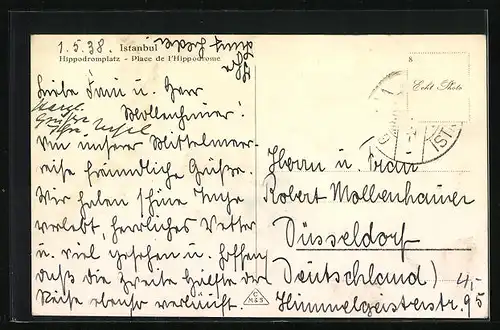 1.5.38.
Istanbul
Hippodromplatz - Place de l'Hippodrome
Liebe Frau u. Herr
Mollenhauer!
Herzl.
Grüße
Von unserer Mittelmeer-
reise freundliche Grüße.
Wir haben schöne Tage
verlebt, herrliches Wetter
u. viel gesehen u. hoffen,
daß die zweite Hälfte der
Reise ebenso verläuft.
8
Echt Photo
Herrn u. Frau
Robert Mollenhauer
Düsseldorf
Deutschland)
Himmelgeisterstr. 95
4,-
C
M&S
IST